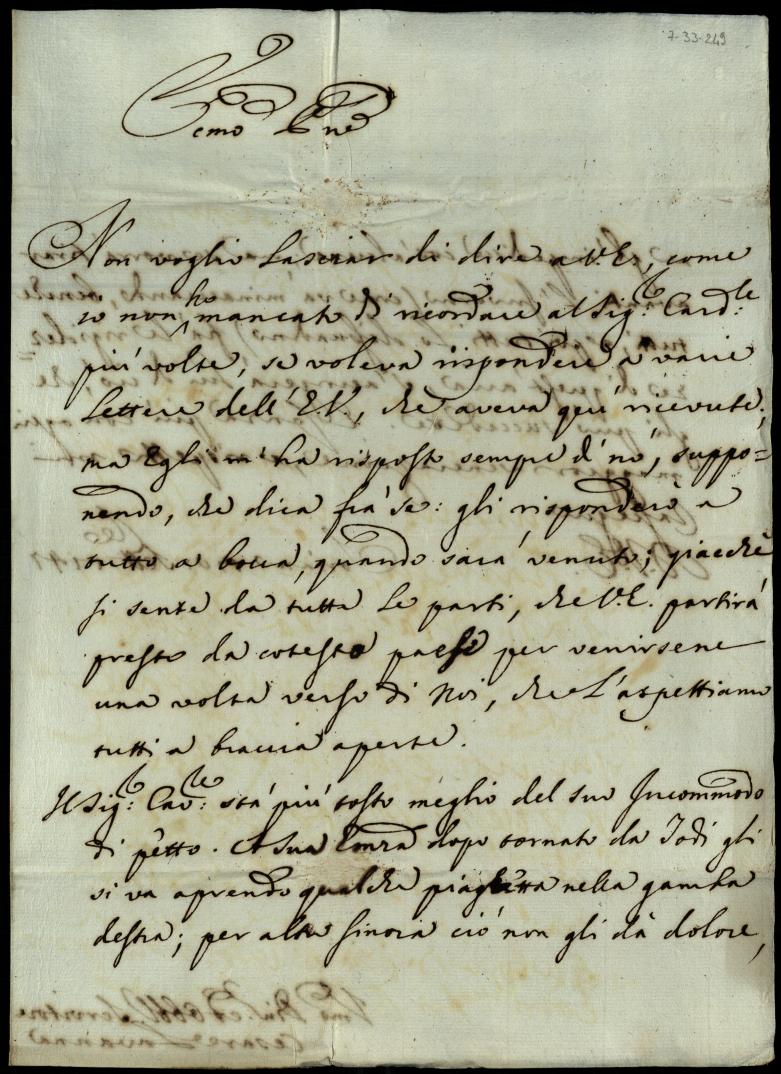 7-33-249
Ecmo Pne
Non voglio lasciar di dire a V. E., come
io non ho mancato di ricordare al Sig.r Card.le
più volte, se voleva rispondere a varie
lettere dell' E. V., che aveva quì ricevute;
ma Egli m'ha risposto sempre di nò, suppo=
nendo, che dica frà se: gli risponderò a
tutto a bocca, quando sarà venuto; giacchè
si sente da tutte le parti, che V. E. partirà
presto da cotesto paese per venirsene
una volta verso di Noi, che L'aspettiamo
tutti a braccia aperte.
Il Sig.r Cav.re stà più tosto meglio del suo Incommodo
di petto. A Sua Emza dopo tornato da Todi gli
si va aprendo qualche piaghetta nella gamba
destra; per altro sinora ciò non gli dà dolore,